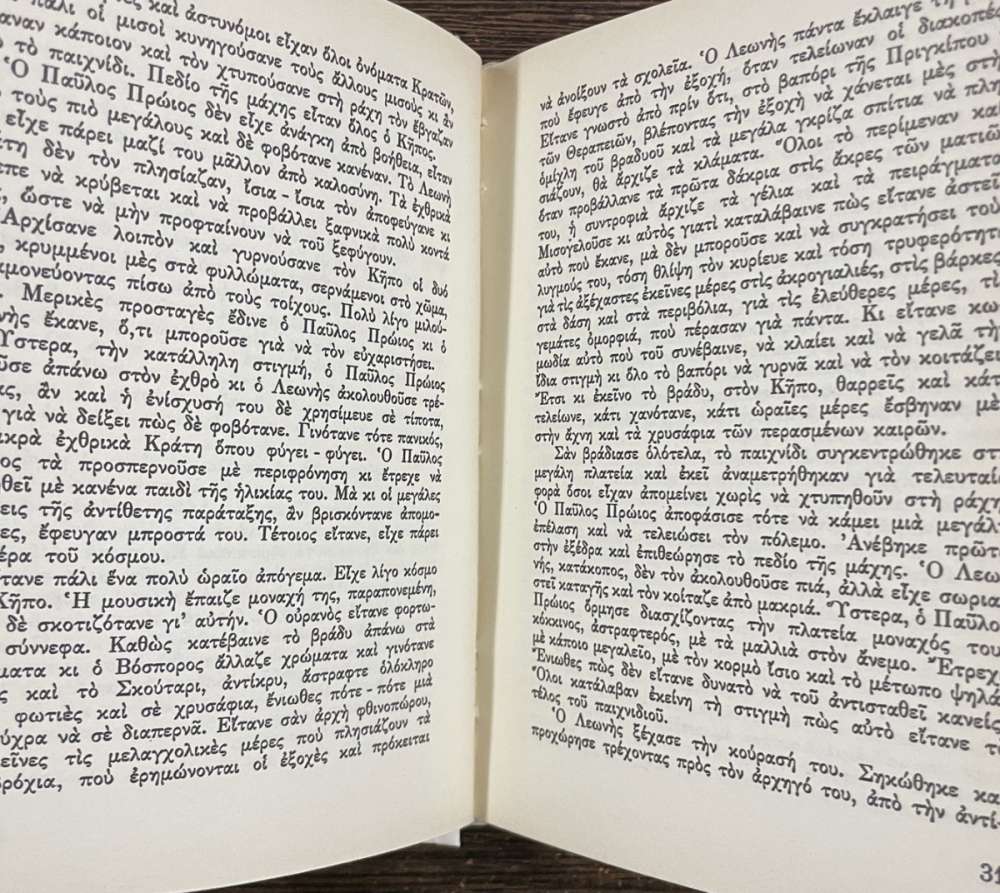 καὶ ἀστυνόμοι εἶχαν ὅλοι ὀνόματα Κρατῶν,
πάλι οἱ μισοὶ κυνηγούσανε τοὺς ἄλλους μισοὺς κι ἂν
κάποιον καὶ τὸν χτυπούσανε στὴ ράχη τὸν ἔβγαζαν
τὸ παιχνίδι. Πεδίο τῆς μάχης εἶταν ὅλος ὁ Κῆπος.
Ὁ Παῦλος Πρώιος δὲν εἶχε ἀνάγκη ἀπὸ βοήθεια, εἶταν
τοὺς πιὸ μεγάλους καὶ δὲ φοβότανε κανέναν. Τὸ Λεωνὴ
εἶχε πάρει μαζί του μᾶλλον ἀπὸ καλοσύνη. Τὰ ἐχθρικὰ
δὲν τὸν πλησίαζαν, ἴσια - ἴσια τὸν ἀποφεύγανε κι
νὰ κρύβεται καὶ νὰ προβάλλει ξαφνικὰ πολὺ κοντά
ὥστε νὰ μὴν προφταίνουν νὰ τοῦ ξεφύγουν.
Ἀρχίσανε λοιπὸν καὶ γυρνούσανε τὸν Κῆπο οἱ δυό
κρυμμένοι μὲς στὰ φυλλώματα, σερνάμενοι στὸ χῶμα,
πίσω ἀπὸ τοὺς τοίχους. Πολὺ λίγο μιλού-
Μερικὲς προσταγὲς ἔδινε ὁ Παῦλος Πρώιος κι ὁ
ἔκανε, ὅ,τι μποροῦσε γιὰ νὰ τὸν εὐχαριστήσει.
Ὕστερα, τὴν κατάλληλη στιγμή, ὁ Παῦλος Πρώιος
ἀπάνω στὸν ἐχθρὸ κι ὁ Λεωνὴς ἀκολουθοῦσε τρέ-
ἂν καὶ ἡ ἐνίσχυσή του δὲ χρησίμευε σὲ τίποτα,
γιὰ νὰ δείξει πὼς δὲ φοβότανε. Γινότανε τότε πανικός,
ἐχθρικὰ Κράτη ὅπου φύγει - φύγει. Ὁ Παῦλος
τὰ προσπερνοῦσε μὲ περιφρόνηση κι ἔτρεχε νὰ
μὲ κανένα παιδὶ τῆς ἡλικίας του. Μὰ κι οἱ μεγάλες
τῆς ἀντίθετης παράταξης, ἂν βρισκόντανε ἀπομο-
ἔφευγαν μπροστά του. Τέτοιος εἴτανε, εἶχε πάρει
τοῦ κόσμου.
πάλι ἕνα πολὺ ὡραῖο ἀπόγεμα. Εἶχε λίγο κόσμο
Κῆπο. Ἡ μουσικὴ ἔπαιζε μοναχή της, παραπονεμένη,
δὲ σκοτιζότανε γι' αὐτήν. Ὁ οὐρανὸς εἴτανε φορτω-
σύννεφα. Καθὼς κατέβαινε τὸ βράδυ ἀπάνω στὰ
κι ὁ Βόσπορος ἄλλαζε χρώματα καὶ γινότανε
καὶ τὸ Σκούταρι, ἀντίκρυ, ἄστραφτε ὁλόκληρο
φωτιὲς καὶ σὲ χρυσάφια, ἔνιωθες πότε - πότε μιὰ
νὰ σὲ διαπερνᾶ. Εἴτανε σὰν ἀρχὴ φθινοπώρου,
τὶς μελαγχολικὲς μέρες ποὺ πλησιάζουν τὰ
ποὺ ἐρημώνονται οἱ ἐξοχὲς καὶ πρόκειται
νὰ ἀνοίξουν τὰ σχολεῖα. Ὁ Λεωνὴς πάντα ἔκλαιγε
ποὺ ἔφευγε ἀπὸ τὴν ἐξοχή, ὅταν τελείωναν οἱ διακοπές.
Εἴτανε γνωστὸ ἀπὸ πρὶν ὅτι, στὸ βαπόρι τῆς Πριγκίπου
τῶν Θεραπειῶν, βλέποντας τὴν ἐξοχὴ νὰ χάνεται μὲς στὴν
ὁμίχλη τοῦ βραδυοῦ καὶ τὰ μεγάλα γκρίζα σπίτια νὰ πλη-
σιάζουν, θὰ ἄρχιζε τὰ κλάματα. Ὅλοι τὸ περίμεναν καὶ
ὅταν προβάλλανε τὰ πρῶτα δάκρια στὶς ἄκρες τῶν ματιῶν
του, ἡ συντροφιὰ ἄρχιζε τὰ γέλια καὶ τὰ πειράγματα.
Μισογελοῦσε κι αὐτὸς γιατὶ καταλάβαινε πὼς εἴτανε ἀστεῖο
αὐτὸ ποὺ ἔκανε, μὰ δὲν μποροῦσε καὶ νὰ συγκρατήσει τοὺς
λυγμούς του, τόση θλίψη τὸν κυρίευε καὶ τόση τρυφερότητα
γιὰ τὶς ἀξέχαστες ἐκεῖνες μέρες στὶς ἀκρογιαλιές, στὶς βάρκες,
στὰ δάση καὶ στὰ περιβόλια, γιὰ τὶς ἐλεύθερες μέρες, τὶς
γεμάτες ὀμορφιά, ποὺ πέρασαν γιὰ πάντα. Κι εἴτανε κω-
μωδία αὐτὸ ποὺ τοῦ συνέβαινε, νὰ κλαίει καὶ νὰ γελᾶ τὴν
ἴδια στιγμὴ κι ὅλο τὸ βαπόρι νὰ γυρνᾶ καὶ νὰ τὸν κοιτάζει.
Ἔτσι κι ἐκεῖνο τὸ βράδυ, στὸν Κῆπο, θαρρεῖς καὶ κάτι
τελείωνε, κάτι χανότανε, κάτι ὡραῖες μέρες ἔσβηναν μὲς
στὴν ἄχνη καὶ τὰ χρυσάφια τῶν περασμένων καιρῶν.
Σὰν βράδιασε ὁλότελα, τὸ παιχνίδι συγκεντρώθηκε στὴ
μεγάλη πλατεία καὶ ἐκεῖ ἀναμετρήθηκαν γιὰ τελευταία
φορὰ ὅσοι εἶχαν ἀπομείνει χωρὶς νὰ χτυπηθοῦν στὴ ράχη.
Ὁ Παῦλος Πρώιος ἀποφάσισε τότε νὰ κάμει μιὰ μεγάλη
ἐπέλαση καὶ νὰ τελειώσει τὸν πόλεμο. Ἀνέβηκε πρῶτα
στὴν ἐξέδρα καὶ ἐπιθεώρησε τὸ πεδίο τῆς μάχης. Ὁ Λεω-
νής, κατάκοπος, δὲν τὸν ἀκολουθοῦσε πιά, ἀλλὰ εἶχε σωρια-
στεῖ καταγῆς καὶ τὸν κοίταζε ἀπὸ μακριά. Ὕστερα, ὁ Παῦλος
Πρώιος ὅρμησε διασχίζοντας τὴν πλατεία μοναχός του,
κόκκινος, ἀστραφτερός, μὲ τὰ μαλλιὰ στὸν ἄνεμο. Ἔτρεχε
μὲ κάποιο μεγαλεῖο, μὲ τὸν κορμὸ ἴσιο καὶ τὸ μέτωπο ψηλά.
Ἔνιωθες πὼς δὲν εἴτανε δυνατὸ νὰ τοῦ ἀντισταθεῖ κανείς.
Ὅλοι κατάλαβαν ἐκείνη τὴ στιγμὴ πὼς αὐτὸ εἴτανε τὸ
τέλος τοῦ παιχνιδιοῦ.
Ὁ Λεωνὴς ξέχασε τὴν κούρασή του. Σηκώθηκε καὶ
προχώρησε τρέχοντας πρὸς τὸν ἀρχηγό του, ἀπὸ τὴν ἀντί-